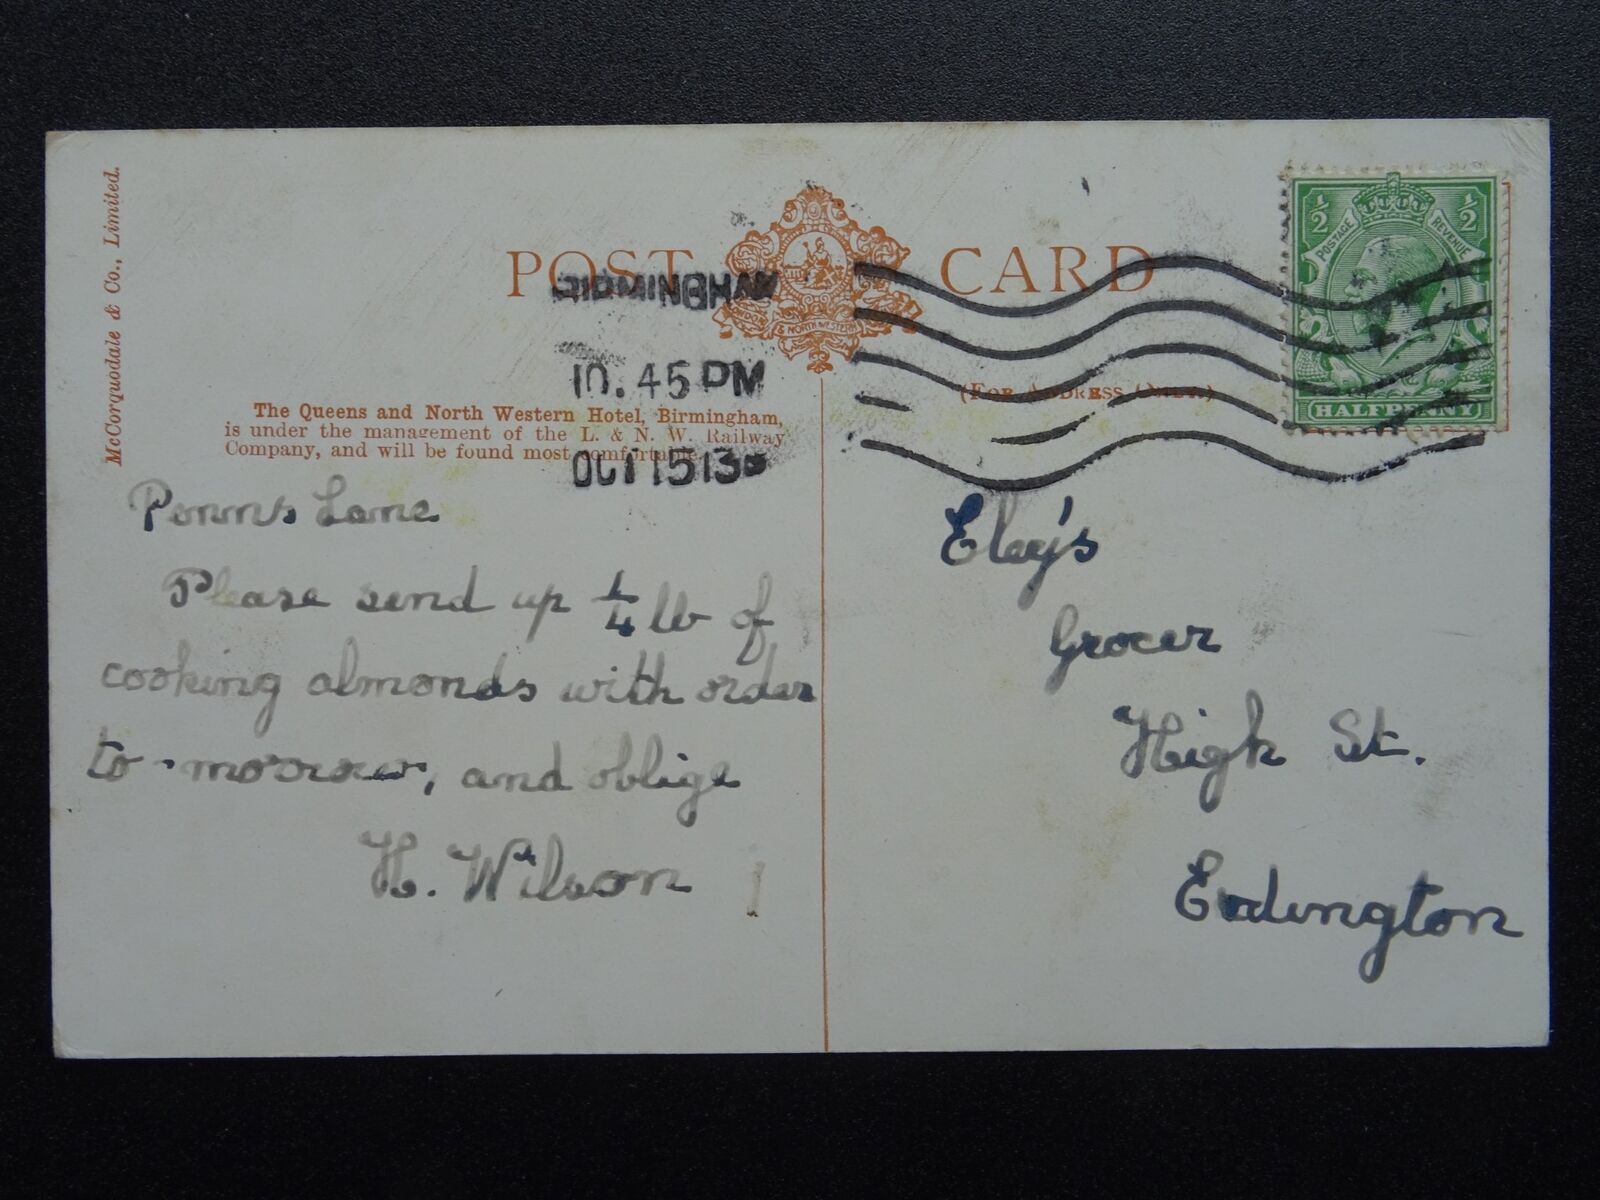 McCorquodale & Co., Limited.
POST CARD
LONDON & NORTH WESTERN
BIRMINGHAM
10.45 PM
OCT 15 13
The Queens and North Western Hotel, Birmingham,
is under the management of the L. & N. W. Railway
Company, and will be found most comfortable.
(FOR ADDRESS ONLY.)
½ ½
POSTAGE REVENUE
HALFPENNY
Penns Lane
Please send up ¼ lb of
cooking almonds with order
to-morrow, and oblige
H. Wilson
Eley's
Grocer
High St.
Erdington